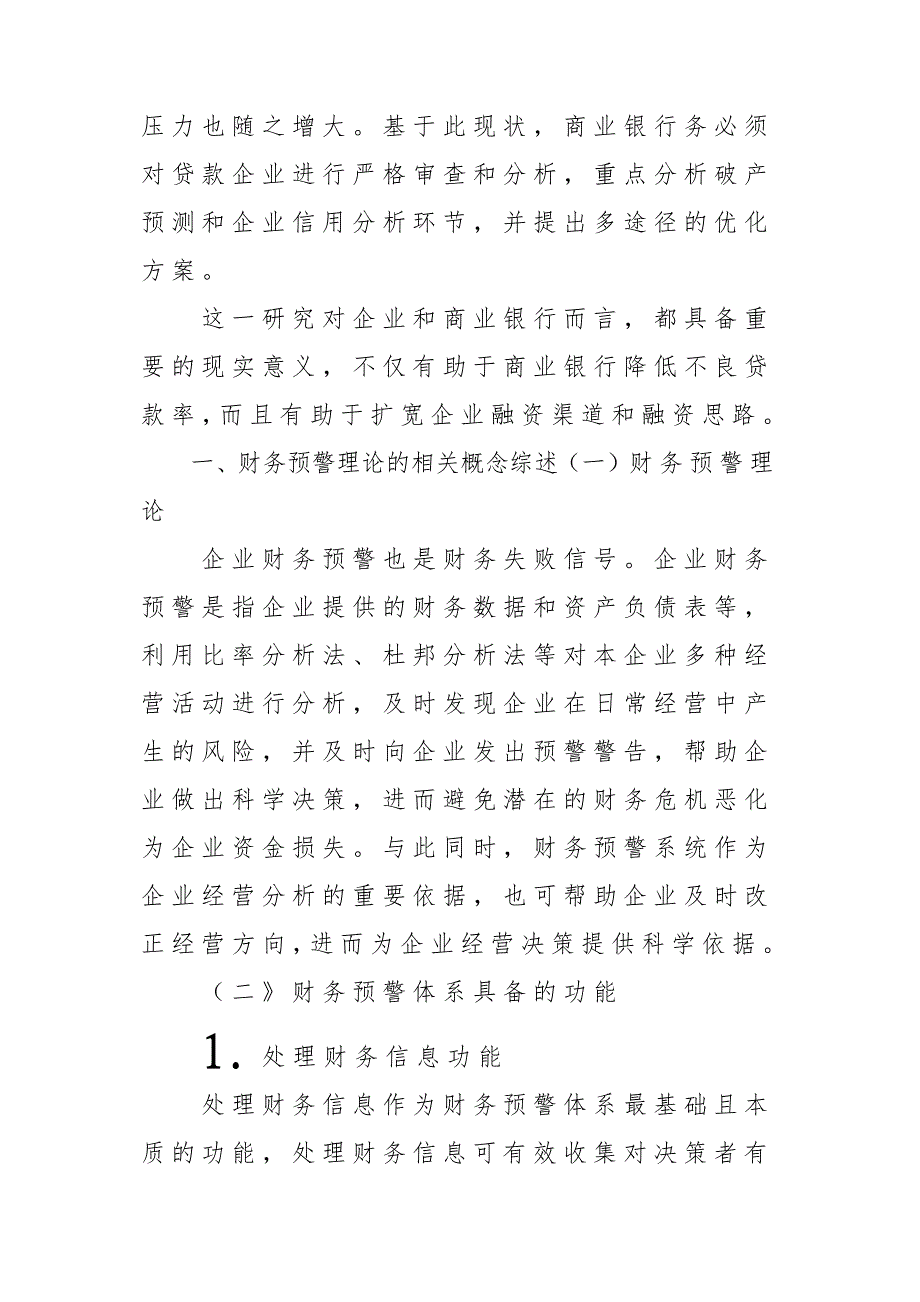 压力也随之增大。基于此现状，商业银行务必须
对贷款企业进行严格审查和分析，重点分析破产
预测和企业信用分析环节，并提出多途径的优化
方案。
这一研究对企业和商业银行而言，都具备重
要的现实意义，不仅有助于商业银行降低不良贷
款率，而且有助于扩宽企业融资渠道和融资思路。
一、财务预警理论的相关概念综述（一）财务预警理
论
企业财务预警也是财务失败信号。企业财务
预警是指企业提供的财务数据和资产负债表等，
利用比率分析法、杜邦分析法等对本企业多种经
营活动进行分析，及时发现企业在日常经营中产
生的风险，并及时向企业发出预警警告，帮助企
业做出科学决策，进而避免潜在的财务危机恶化
为企业资金损失。与此同时，财务预警系统作为
企业经营分析的重要依据，也可帮助企业及时改
正经营方向，进而为企业经营决策提供科学依据。
（二》财务预警体系具备的功能
1.处理财务信息功能
处理财务信息作为财务预警体系最基础且本
质的功能，处理财务信息可有效收集对决策者有